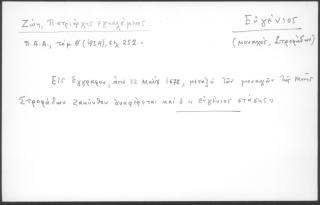 Ζώη, Πατριάρχης ἐγκαλέμενος
Εὐγένιος
Π.Α.Α., τόμ. Θ' (1934), σελ. 252.-
(μοναχός, Στροφάδων)
Εἰς ἔγγραφον, ἀπὸ 22 Μαΐου 1678, μεταξὺ τῶν μοναχῶν τῆς Μονῆς
Στροφάδων Ζακύνθου ἀναφέρεται καὶ ὁ "εὐγένιος